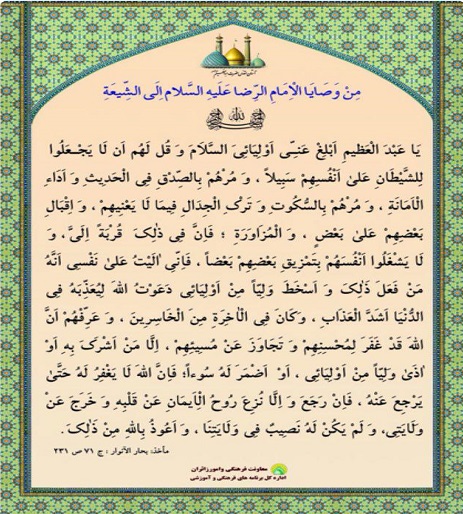 مِنْ وَصَايَا الْاِمَامِ الرِّضَا عَلَيهِ السَّلام اِلَى الشِّيعَةِ
يَا عَبْدَ العَظيمِ اَبْلِغْ عَنّـِى اَوْلِيَائِىَ السَّلَامَ وَ قُل لَهُم اَن لَا يَجْـعَلُوا
لِلشَّيْطَانِ عَلىٰ اَنْفُسِهِمْ سَبِيلاً ، وَ مُرْهُمْ بِالصّـِدْقِ فِى الْحَديثِ وَ اَدَاءِ
الْاَمَانَةِ ، وَ مُرْهُمْ بِالسُّكُوتِ وَ تَركِ الْجِدَالِ فِيمَا لَا يَعْنِيهِمْ ، وَ اِقْبَالِ
بَعْضِهِمْ عَلىٰ بَعْضٍ ، وَ الْمُزَاوَرَةِ ؛ فَاِنَّ فِى ذٰلِكَ قُرْبَةً اِلَىَّ، وَ
لَا يَشْغَلُوا اَنْفُسَهُمْ بِتَمْزِيقِ بَعْضِهِمْ بَعْضاً ، فَاِنِّي اٰلَيْتُ عَلىٰ نَفْسِى اَنَّهُ
مَنْ فَعَلَ ذٰلِكَ وَ اَسْخَطَ وَلِيّاً مِنْ اَوْلِيَائِى دَعَوْتُ اللهَ لِيُعَذِّبَهُ فِى
الدُّنْيَا اَشَدَّ الْعَذَابِ ، وَكَانَ فِى الْاٰخِرَةِ مِنَ الْخَاسِرِينَ ، وَ عَرِّفْهُمْ اَنَّ
اللهَ قَدْ غَفَرَ لِمُحْسِنِهِمْ وَ تَجَاوَزَ عَنْ مُسِيئِهِمْ ، اِلَّا مَنْ اَشْرَكَ بِهِ اَوْ
اٰذىٰ وَلِيّاً مِنْ اَوْلِيَائِى ، اَوْ اَضْمَرَ لَهُ سُوءاً؛ فَاِنَّ اللهَ لَا يَغْفِرُ لَهُ حَتّىٰ
يَرْجِعَ عَنْهُ ، فَاِنْ رَجَعَ وَ اِلَّا نُزِعَ رُوحُ الْاِيمَانِ عَنْ قَلْبِهِ وَ خَرَجَ عَنْ
وَلَايَتِى، وَ لَمْ يَكُنْ لَهُ نَصيبٌ فِى وَلَايَتِنَا ، وَ اَعُوذُ بِاللهِ مِنْ ذٰلِكَ.
مأخذ: بحار الأنوار : ج ٧١ ص ٢٣١
معاونت فرهنگی وامور زائران
اداره کل برنامه های فرهنگی و آموزشی